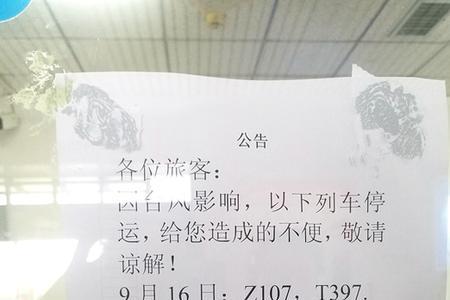 公告
各位旅客：
因台风影响，以下列车停
运，给您造成的不便，敬请
谅解！
9 月 16 日：Z107，T397，